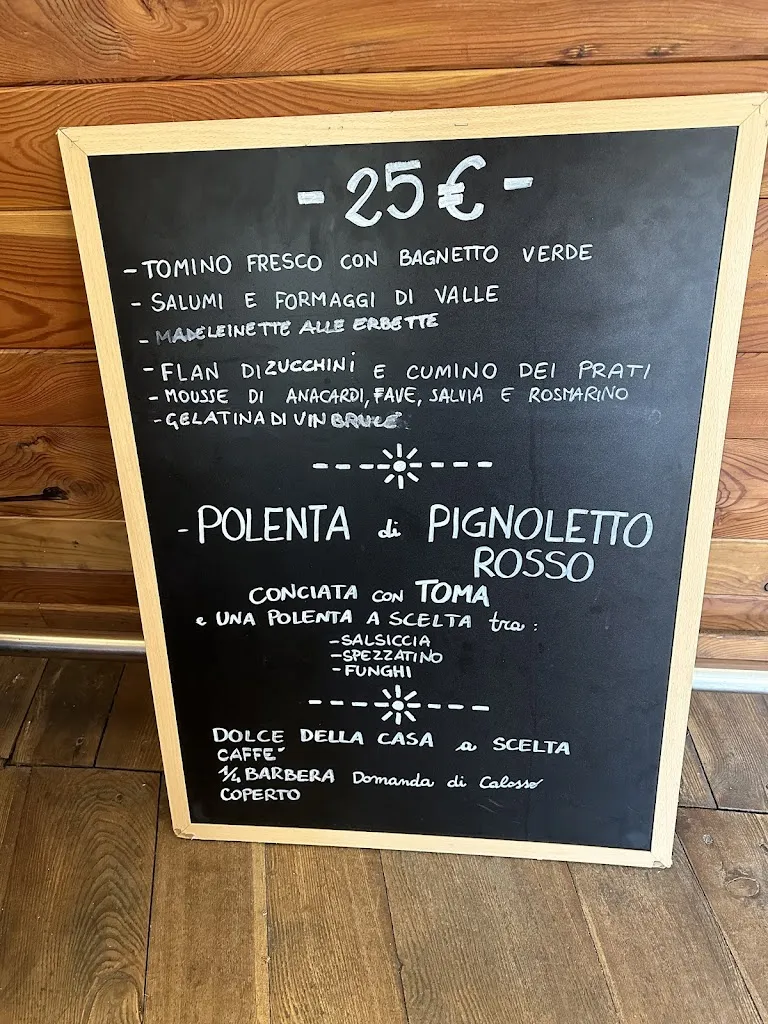 - 25€ -
- TOMINO FRESCO CON BAGNETTO VERDE
- SALUMI E FORMAGGI DI VALLE
- MADELEINETTE ALLE ERBETTE
- FLAN DI ZUCCHINI E CUMINO DEI PRATI
- MOUSSE DI ANACARDI, FAVE, SALVIA E ROSMARINO
- GELATINA DI VIN BRULE'
- POLENTA di PIGNOLETTO
ROSSO
CONCIATA CON TOMA
e UNA POLENTA A SCELTA tra:
- SALSICCIA
- SPEZZATINO
- FUNGHI
DOLCE DELLA CASA a SCELTA
CAFFE'
1/4 BARBERA Domanda di Calosso
COPERTO